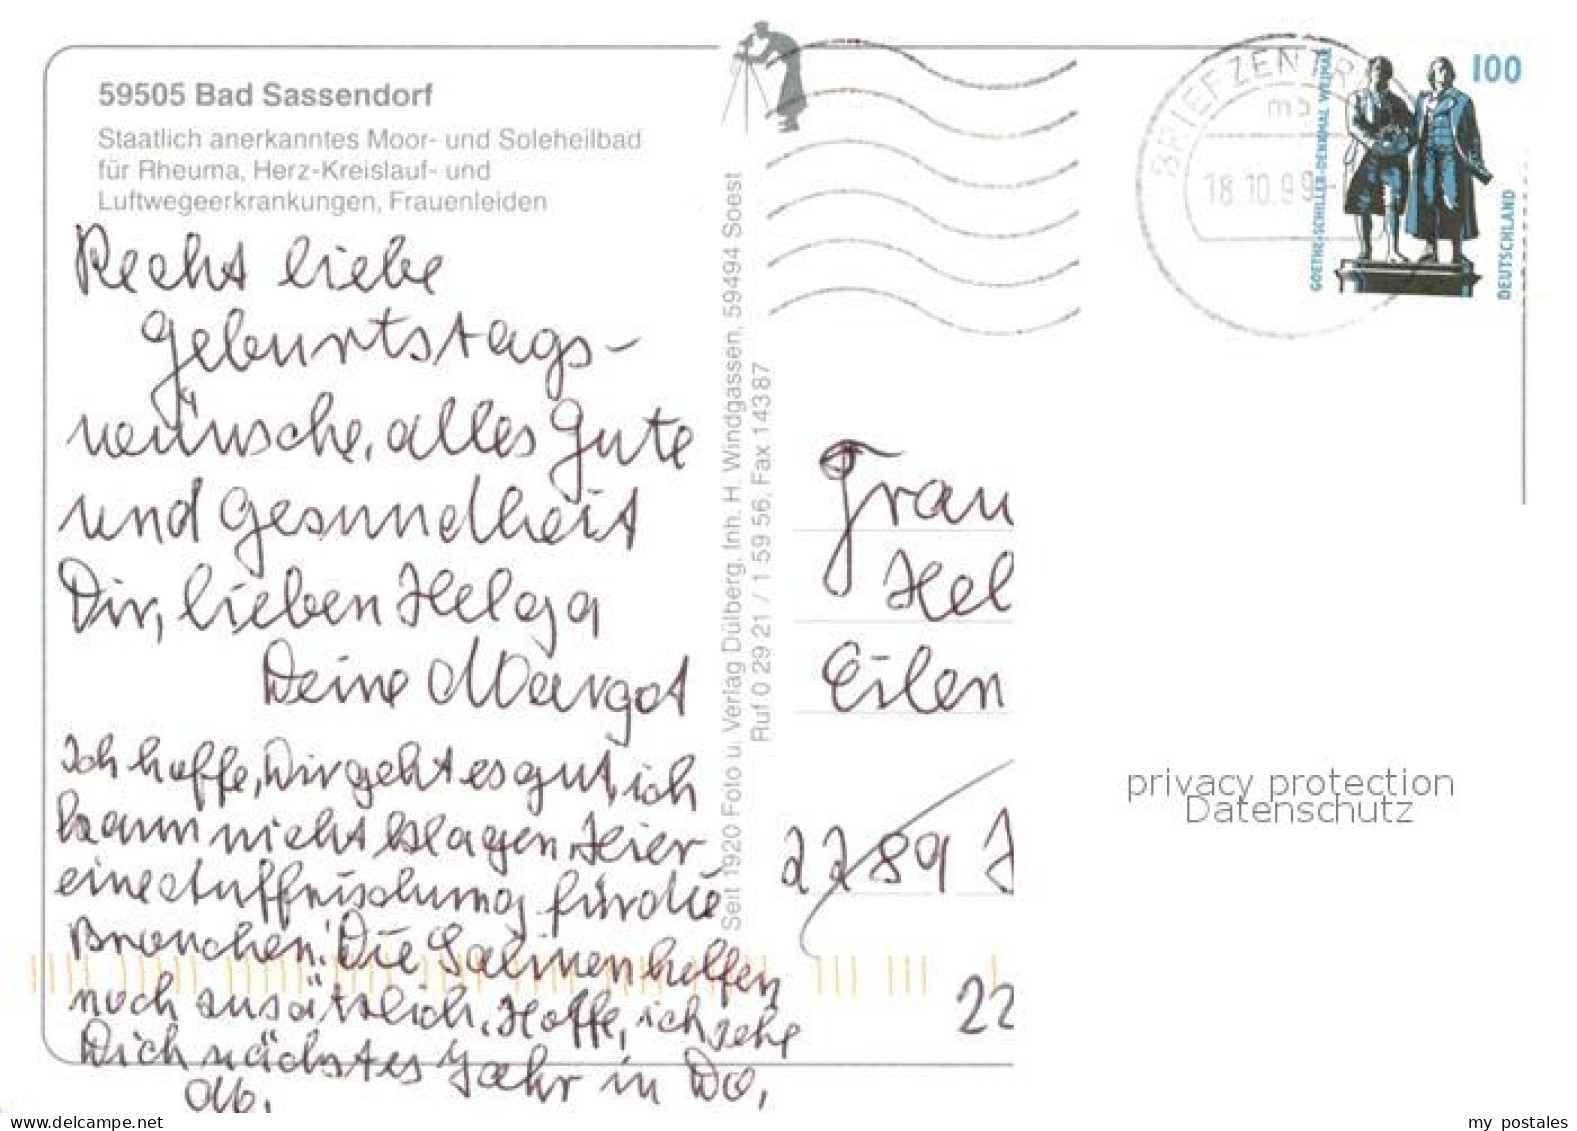 59505 Bad Sassendorf
Staatlich anerkanntes Moor- und Soleheilbad
für Rheuma, Herz-Kreislauf- und
Luftwegeerkrankungen, Frauenleiden
Recht liebe
Geburtstags-
wünsche, alles Gute
und Gesundheit
Dir, lieben Helga
Deine Margot
Ich hoffe, Dir geht es gut, ich
kann nicht klagen. Hier
eine Auffrischung für die
Bronchen! Die Salinen helfen
noch zusätzlich. Hoffe, ich sehe
Dich nächstes Jahr in Do,
Ab.
Seit 1920 Foto u. Verlag Dülberg, Inh. H. Windgassen, 59494 Soest
Ruf 0 29 21 / 1 59 56, Fax 14387
BRIEFZENTR
ms
18.10.99
GOETHE-SCHILLER-DENKMAL WEIMAR
100
DEUTSCHLAND
Frau
Hel
Eilen
2289
22
privacy protection
Datenschutz
www.delcampe.net
my postales